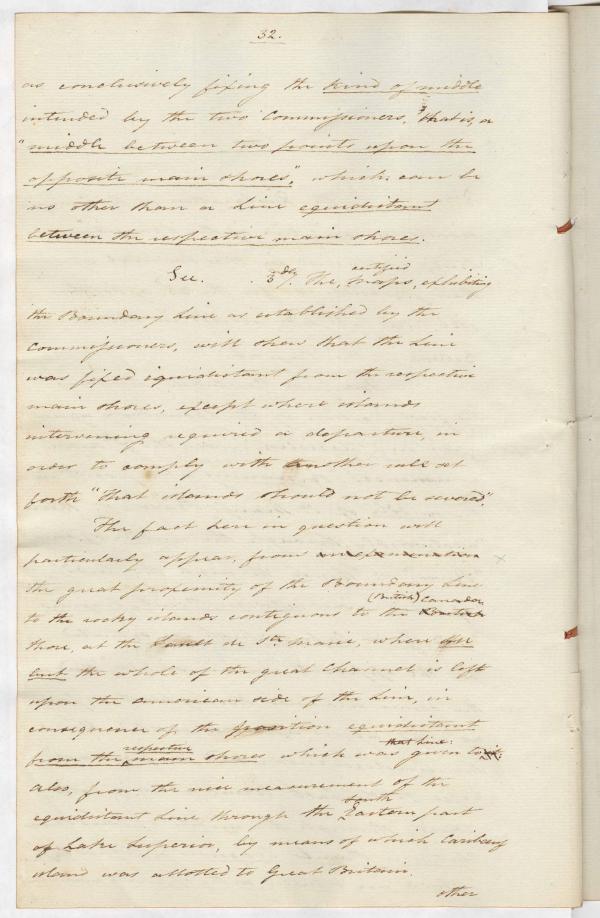 32.
as conclusively fixing the kind of middle
intended by the two Commissioners, that is, a
"middle between two points upon the
opposite main shores", which can be
no other than a Line equidistant
between the respective main shores.
See. 3dly. The certified maps, exhibiting
the Boundary Line as established by the
Commissioners, will shew that the Line
was fixed equidistant from the respective
main shores, except where islands
intervening required a departure, in
order to comply with another rule set
forth "that islands should not be severed".
The fact here in question will
particularly appear, from an examination
the great proximity of the Boundary Line
to the rocky islands contiguous to the (British) Canada
shore, at the Sault de Ste. Marie, where
but the whole of the great Channel is left
upon the American side of the Line, in
consequence of the position equidistant
from the respective main shores which was given to that Line:
also, from the nice measurement of the
equidistant Line through the South Eastern part
of Lake Superior, by means of which Caribeauf
island was allotted to Great Britain.
other